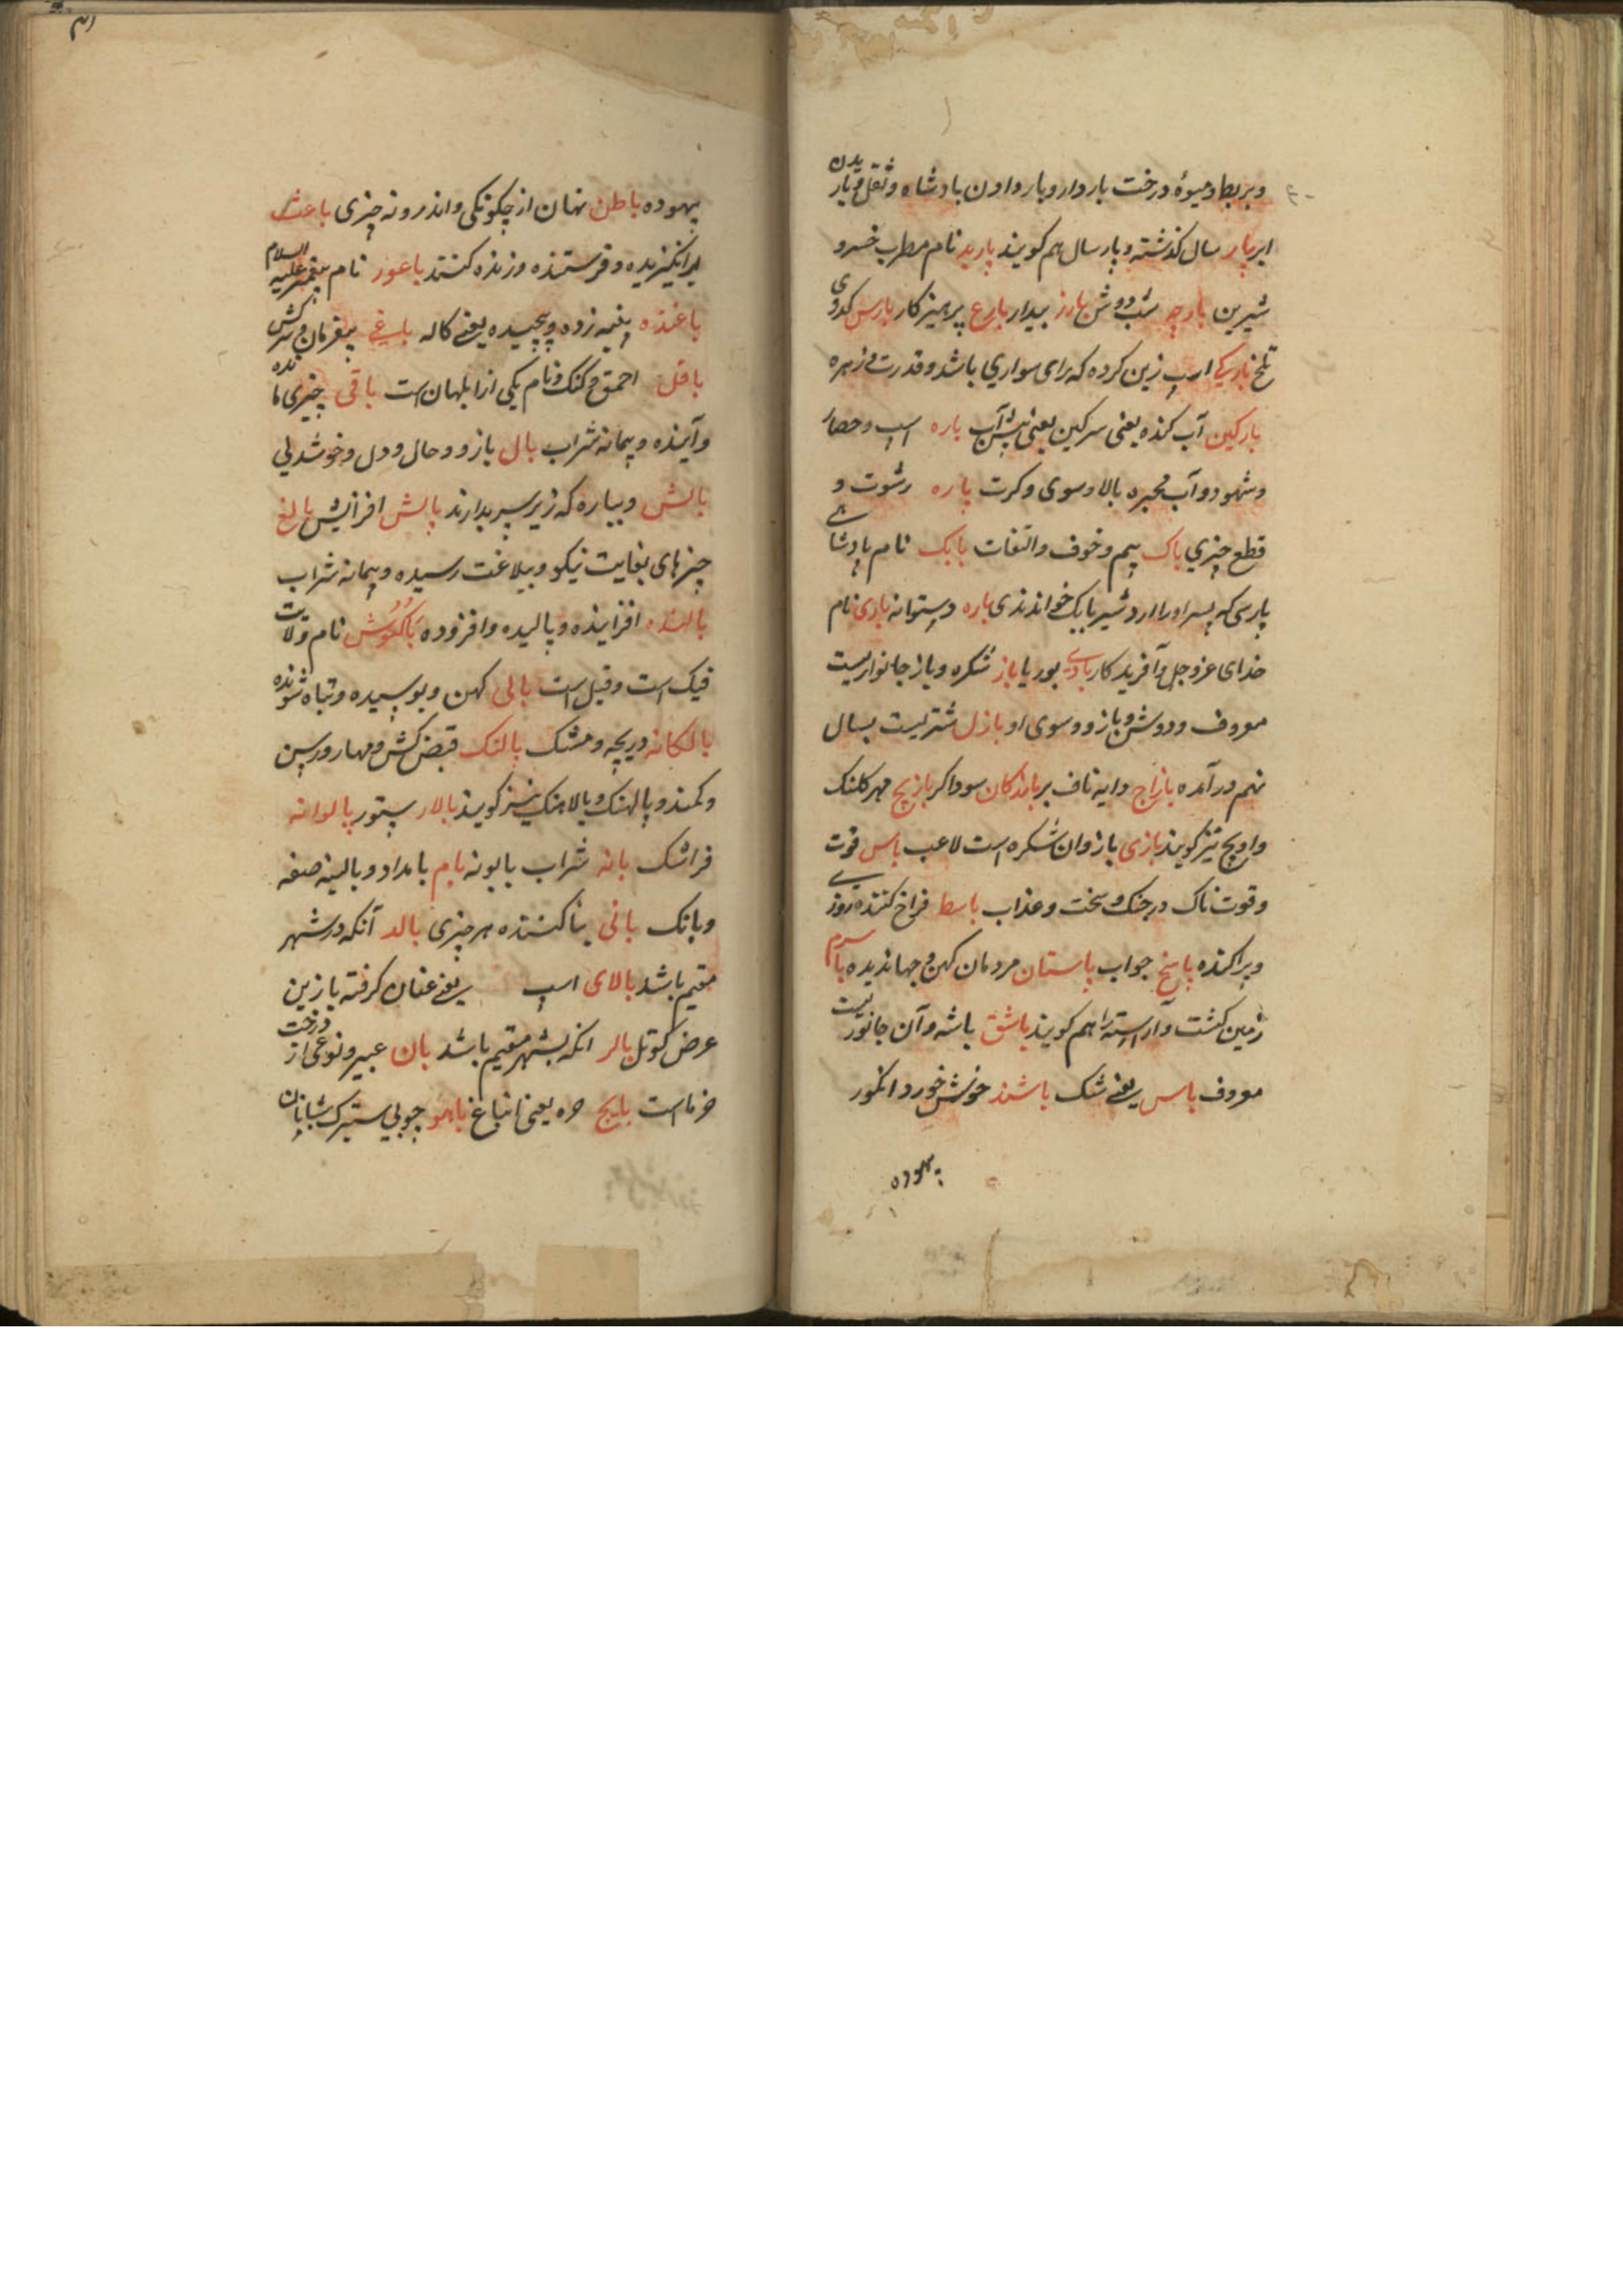 وبربط ومیوهٔ درخت باردار وبار دادن بادشاه وثقل وباریدن
ابر پار سال کذشته وپار سال هم کویند باربد نام مطرب خسرو
شیرین بارز بیدار بارع پرهیزکار بارس کدوی
تلخ بارکی اسپ زین کرده که برای سواری باشد وقدرت وزهره
بارکین آب کنده یعنی سرکین یعنی آب باره اسپ وحصار
وآب محبره بالا وسوی وکرت پاره رشوت و
قطع چیزی باک بیم وخوف والتفات بابک نام پادشاهی
پارسی که پسر اورا اردشیر بابک خوانندی یاره دستوانه باری نام
خدای عزوجل وآفریدکار بوریا باز شکره وباز جانوریست
معروف ودوش وبازو وسوی او بازل شتریست بسال
نهم درآمده بازاج دایه ناف بر بازرکان سوداکر بازیچ مهر کلنک
وادیچ نیز کویند بازی بازوان شکره است لاعب باس قوت
وقوت ناک در جنک وسخت وعذاب باسط فراخ کننده روزی
وپراکنده پاسخ جواب باستان مردمان کهن وجهاندیده باسرم
زمین کشت وآراسته را هم کویند باشق باشه وآن جانوریست
معروف باس یعنی شک باشند خوش خورد انکور
بیهوده
بیهوده باطن نهان از چکونکی واندرونه چیزی باعث
برانکیزیده وفرستنده وزنده کننده باعور نام پیغمبر علیه السلام
باغنده پنبه زده وپیچیده یعنی کاله باغی بیفرمان وسرکش
باقل احمق وکنک ونام یکی از ابلهان است باقی چیزی مانده
وآینده وپیمانه شراب بال بازو وحال ودل وخوشدلی
بالش که زیر سر بدارند بالش افزایش بالغ
چیزهای بغایت نیکو وببلاغت رسیده وپیمانه شراب
بالنده افزاینده وبالیده وافزوده نام ولایت
است بالی کهن وبوسیده وتباه شونده
بالکانه دریچه ومشک پالنک قبض کش ومهار ورسن
وکمند وپالهنک وبالاهنک نیز کویند بالار ستور پالوانه
فراشک بانه شراب بابونه بام بامداد وبالینه صفه
وبانک بانی بنا کننده هر چیزی بالد آنکه در شهر
مقیم باشد بالای اسپ یعنی عنان کرفته با زین
عرض کوتل بالر انکه بشهر مقیم باشد بان عبیر ونوعی از درخت
خرما است بانج حره یعنی انباغ باهو چوبی سترک شبانان